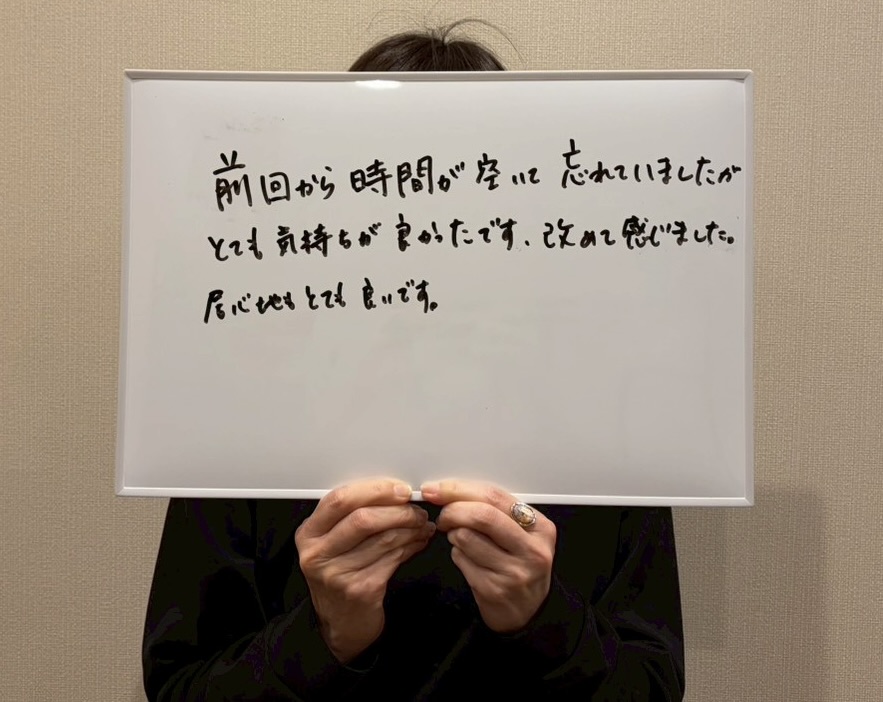 前回から時間が空いて忘れていましたが
とても気持ちが良かったです、改めて感じました。
居心地もとても良いです。